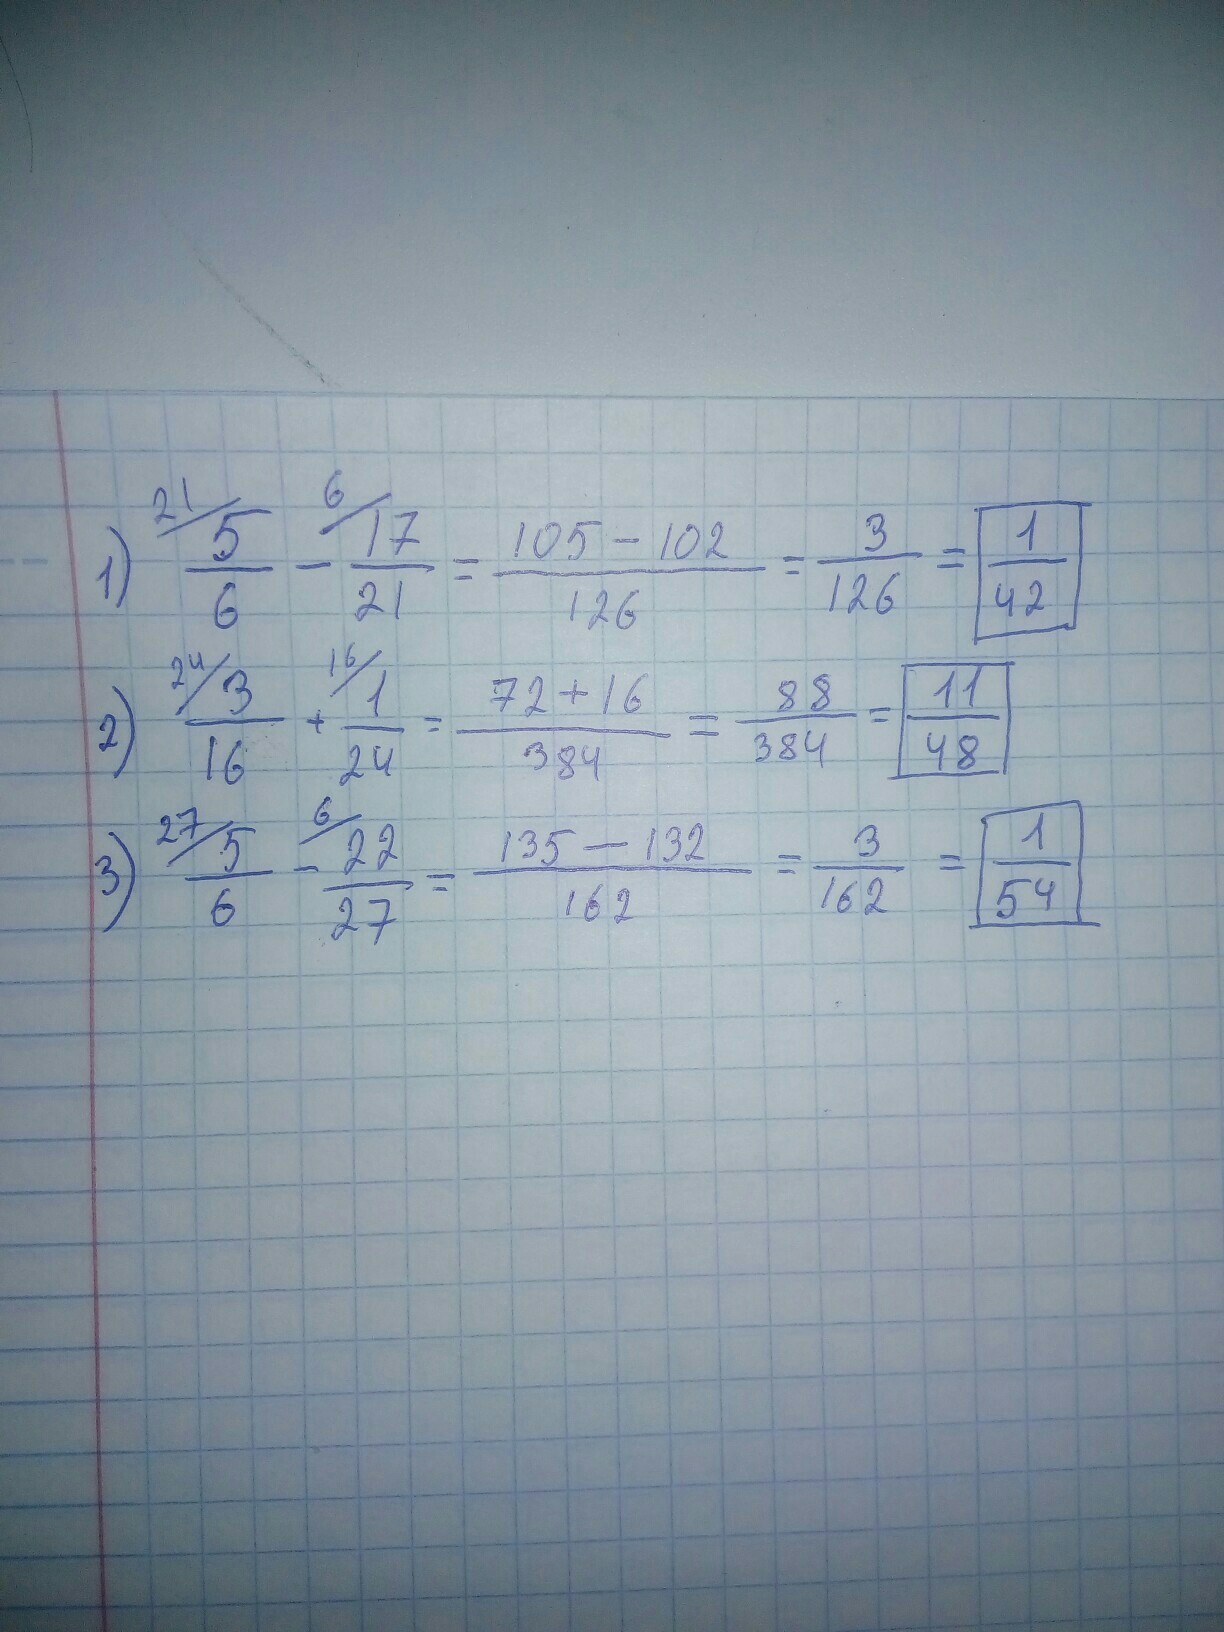 1) 21/ 5/6 - 6/ 17/21 = (105 - 102)/126 = 3/126 = 1/42
2) 24/ 3/16 + 16/ 1/24 = (72 + 16)/384 = 88/384 = 11/48
3) 27/ 5/6 - 6/ 22/27 = (135 - 132)/162 = 3/162 = 1/54